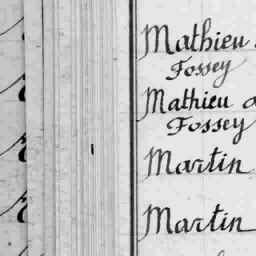 Mathieu
Fossey
Mathieu
Fossey
Martin
Martin